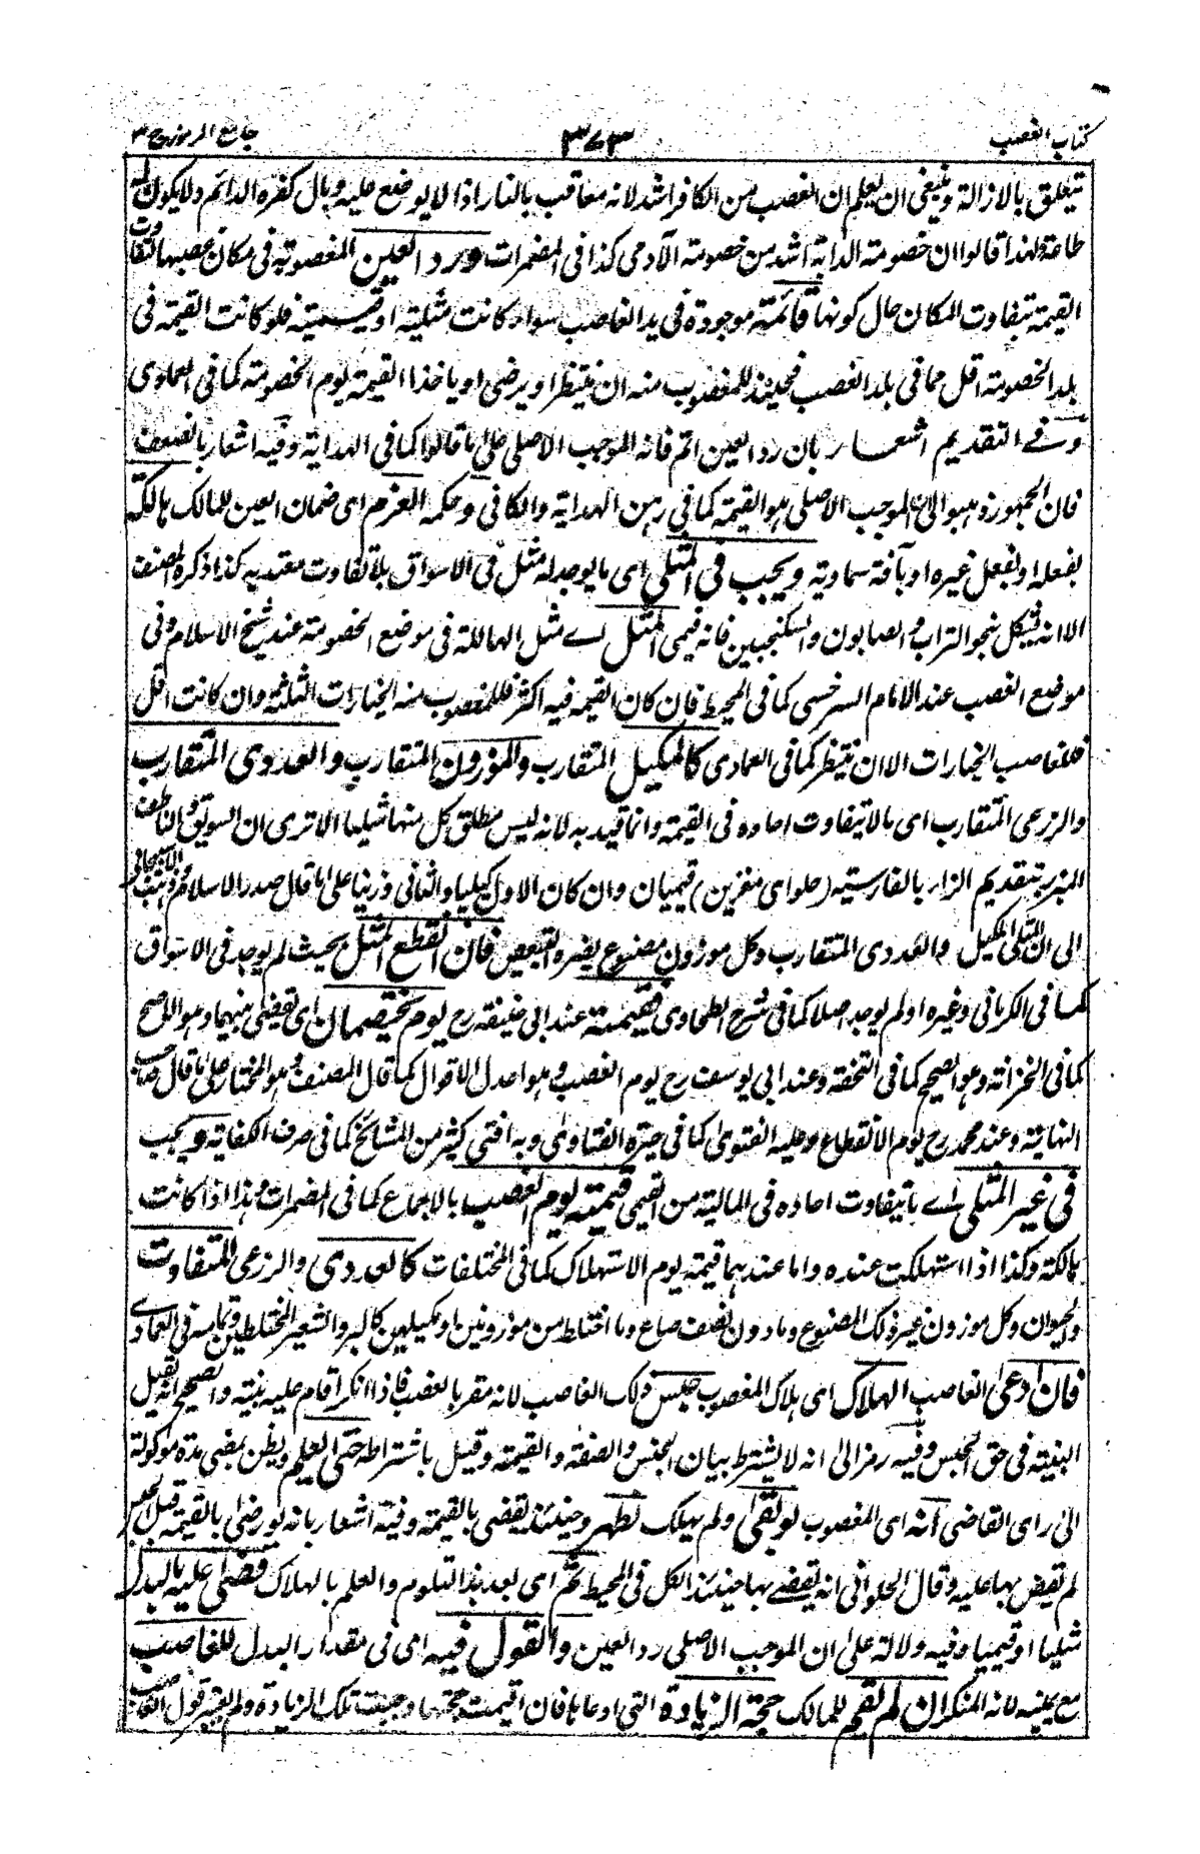 كتاب الغصب ٣٧٣ جامع الرموز ج ٣
يتعلق بالازالة وينبغي ان يعلم ان الغصب من الكافر اشد لانه معاقب بالنار اذ لا يوضع عليه وبال كفره الدائم ولا يكون له
طاعة ولهذا قالوا ان خصومة الدابة اشد من خصومة الآدمي كذا في المضمرات ورد العين المغصوبة في مكان غصبها لتفاوت
القيمة بتفاوت المكان حال كونها قائمة موجودة في يد الغاصب سواء كانت مثلية او قيمية فلو كانت القيمة في
بلد الخصومة اقل مما في بلد الغصب فحينئذ للمغصوب منه ان ينتظر او يرضى او ياخذ القيمة يوم الخصومة كما في العمادي
وفي التقديم اشعار بان رد العين اتم فانه الموجب الاصلي على ما قالوا كما في الهداية وفيه اشعار بالضعف
فان الجمهور ذهبوا الى ان الموجب الاصلي هو القيمة كما في رهن الهداية والكافي وحكمه الغرم اي ضمان العين للمالك هالكة
بفعله او بفعل غيره او بآفة سماوية ويجب في المثلي اي ما يوجد له مثل في الاسواق بلا تفاوت معتد به كذا ذكره المصنف
الا انه يشكل بنحو التراب والصابون والسكنجبين فانه قيمي المثل اے مثل الهالكة في موضع الخصومة عند شيخ الاسلام وفي
موضع الغصب عند الامام السرخسي كما في المحيط فان كان القيمة فيه اكثر فللمغصوب منه الخيارات الثلثة وان كانت اقل
فللغاصب الخيارات الا ان ينتظر كما في العمادي كالمكيل المتقارب والموزون المتقارب والعددي المتقارب
والزرعي المتقارب اي ما لا يتفاوت احاده في القيمة وانما قيد به لانه ليس مطلق كل منها مثليا الا ترى ان السويق والناطف
المبزر بتقديم الزاء بالفارسية (حلواى مغزين) قيميان وان كان الاول كيليا والثاني وزنيا على ما قال صدر الاسلام وذهب الاسبيجابي
الى ان المثلي المكيل والعددي المتقارب وكل موزون مصنوع يضره التبعيض فان انقطع المثل بحيث لم يوجد في الاسواق
كما في الكرماني وغيره او لم يوجد اصلا كما في شرح الطحاوي فقيمته عند ابي حنيفة رح يوم يختصمان اي يقضى بينهما وهو الاصح
كما في الخزانة وهو الصحيح كما في التحفة وعند ابي يوسف رح يوم الغصب وهو اعدل الاقوال كما قال المصنف وهو المختار على ما قال صاحب
النهاية وعند محمد رح يوم الانقطاع وعليه الفتوى كما في ذخيرة الفتاوى وبه افتى كثير من المشائخ كما في صرف الكفاية ويجب
في غير المثلي اے ما يتفاوت احاده في المالية من القيمي قيمته يوم الغصب بالاجماع كما في المضمرات وهذا اذا كانت
هالكة وكذا اذا استهلكت عنده واما عندهما قيمته يوم الاستهلاك كما في المختلفات كالعددي والزرعي المتفاوت
والحيوان وكل موزون غير ذلك المصنوع وما دون نصف صاع وما اختلط من موزونين او مكيلين كالبر والشعير المختلطين وتمامه في العمادے
فان ادعى الغاصب الهلاك اي هلاك المغصوب حبس ذلك الغاصب لانه مقر بالغصب فاذا انكر اقام عليه بينة والصحيح انه يقبل
البينة في حق الحبس وفيه رمز الى انه لا يشترط بيان الجنس والصفة والقيمة وقيل باشتراطه حتى العلم ويظن بمضي مدة موكولة
الى راى القاضي انه اي المغصوب لو بقي ولم يهلك لظهر وحينئذ يقضي بالقيمة وفيه اشعار بانه لو رضى بالقيمة قبل الحبس
لم يقض بها عليه وقال الحلواني انه يقضے بها حينئذ الكل في المحيط ثم اي بعد هذا التلوم والعلم بالهلاك قضى عليه بالبدل
مثليا او قيميا وفيه دلالة على ان الموجب الاصلي رد العين والقول فيه اي في مقدار البدل للغاصب
مع يمينه لانه المنكر ان لم تقم للمالك حجة الزيادة التي ادعاها فان اقيمت حجتها وجبت تلك الزيادة ولم يعتبر قول الغاصب